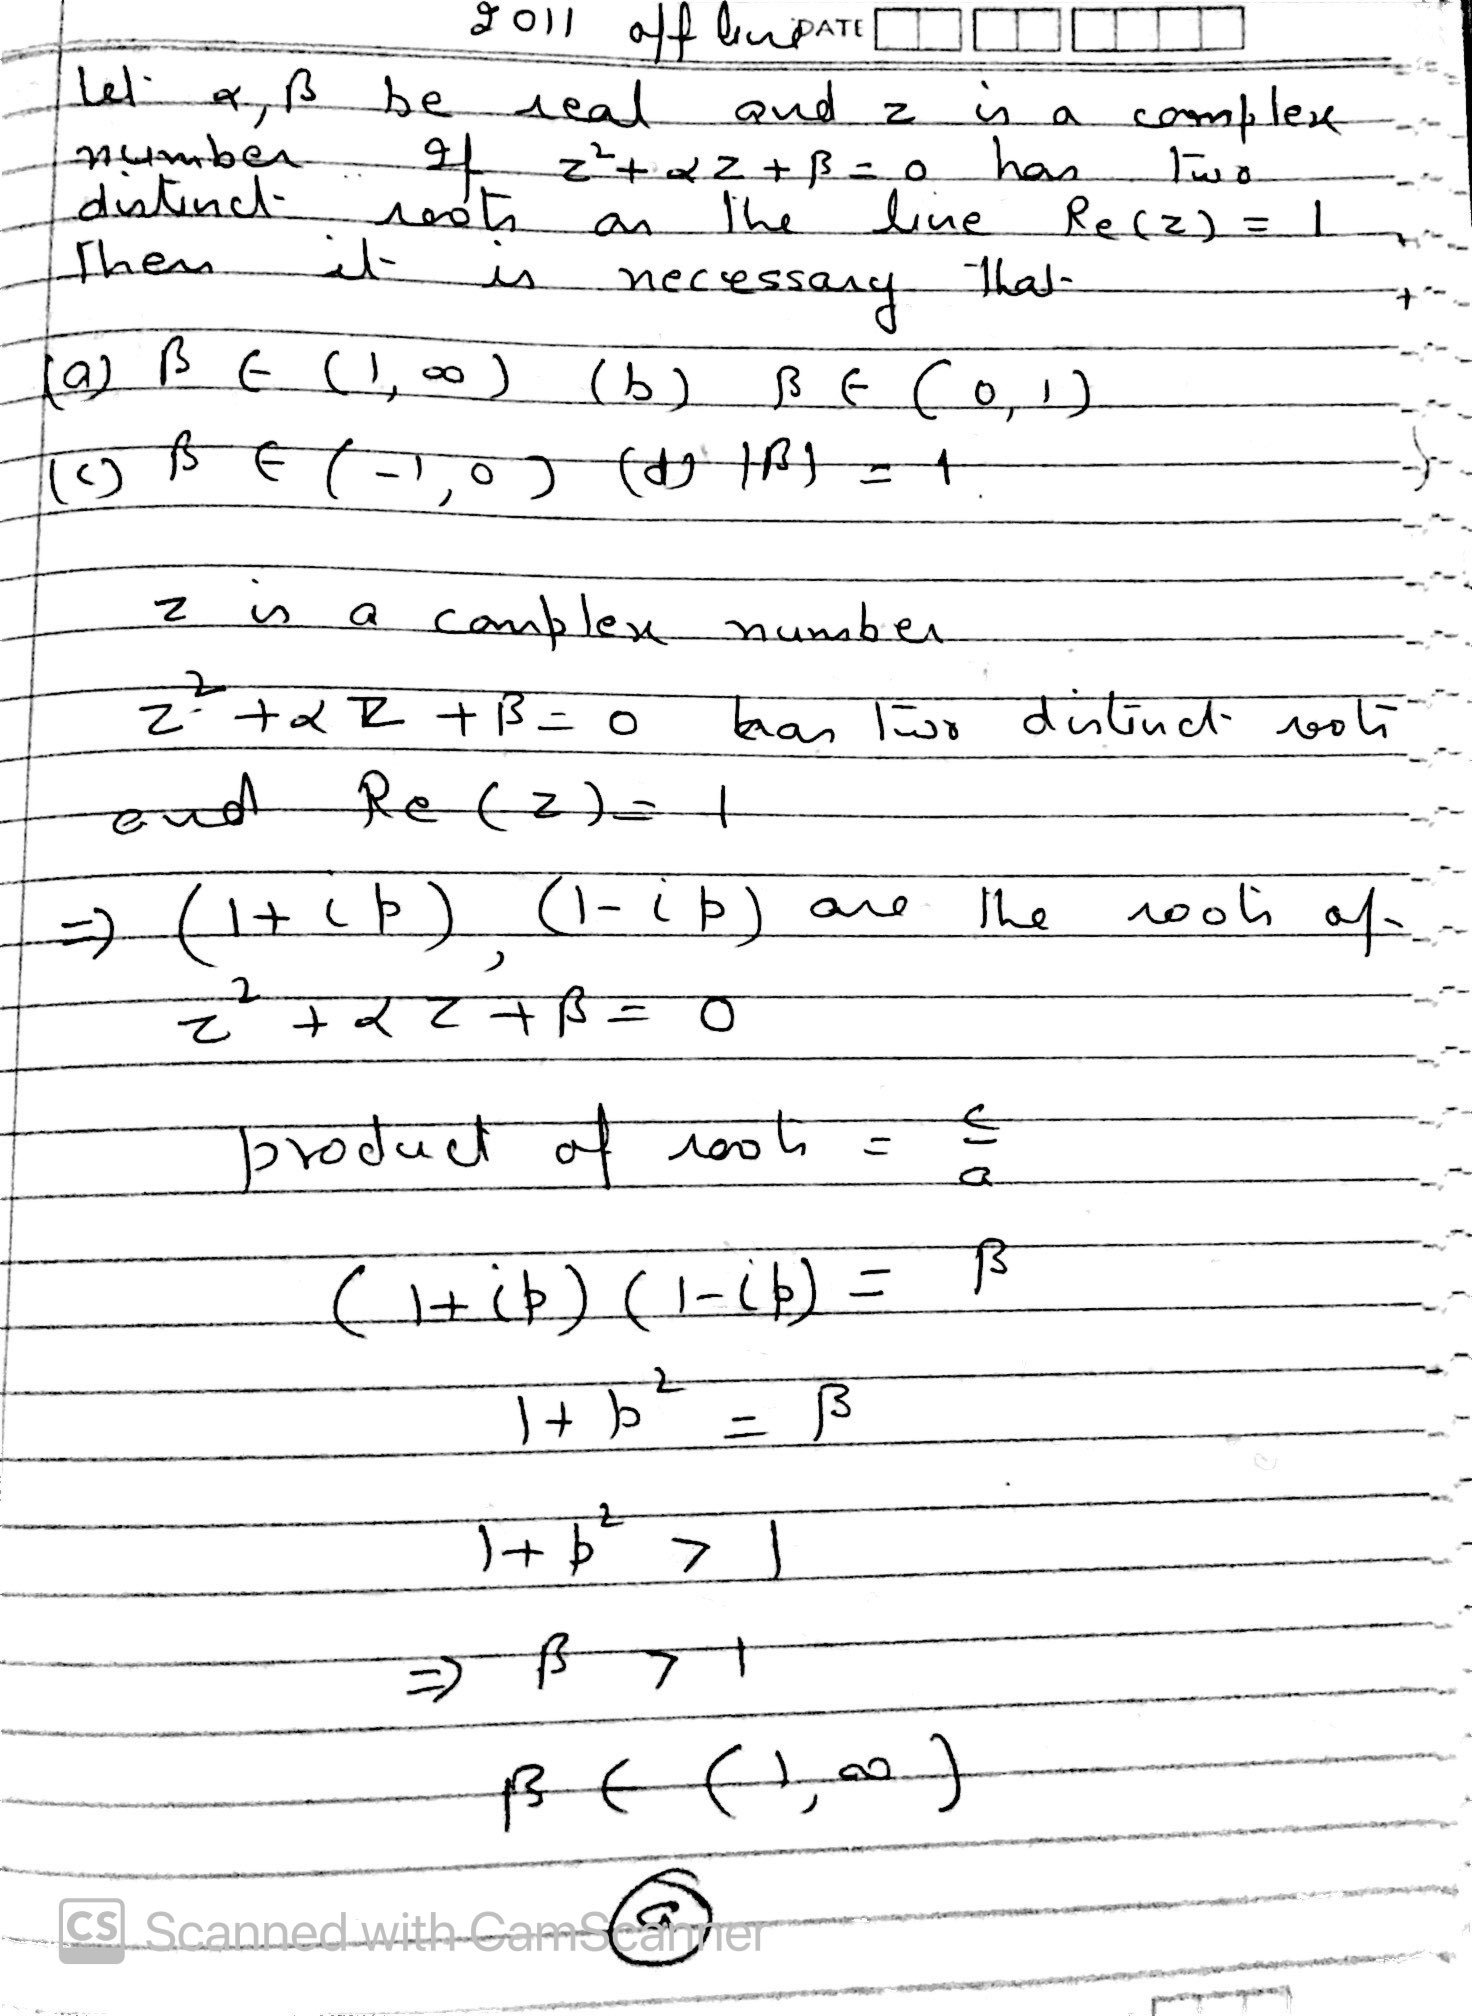 2011 offline DATE
Let α, β be real and z is a complex
number If z² + αz + β = 0 has two
distinct roots on the line Re(z) = 1
Then it is necessary that
(a) β ∈ (1, ∞) (b) β ∈ (0, 1)
(c) β ∈ (-1, 0) (d) |β| = 1
z is a complex number
z² + αz + β = 0 has two distinct roots
and Re(z) = 1
⇒ (1 + ip), (1 - ip) are the roots of
z² + αz + β = 0
product of roots = c/a
(1 + ip)(1 - ip) = β
1 + p² = β
1 + p² > 1
⇒ β > 1
β ∈ (1, ∞)
(a)
CS Scanned with CamScanner